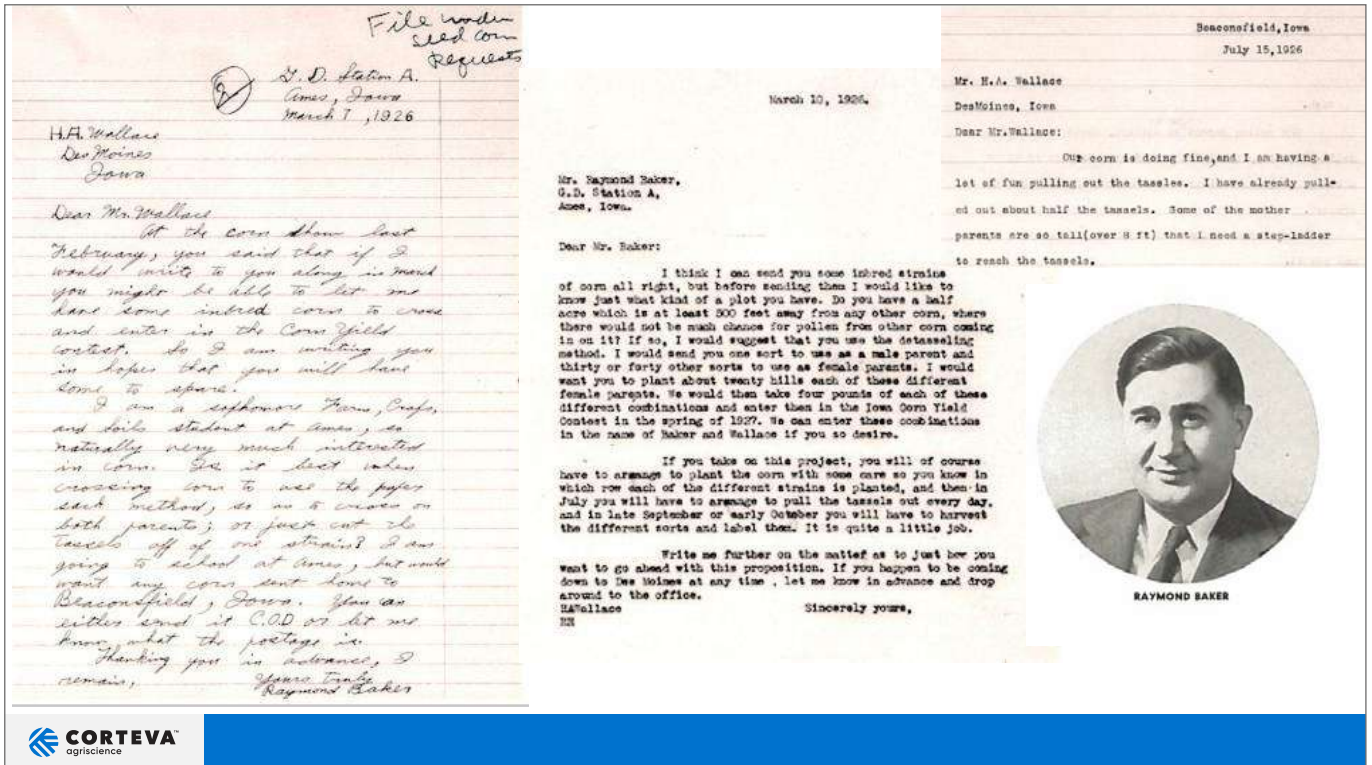 File under
seed corn
requests
G. D. Station A.
Ames, Iowa
March 7, 1926
H.A. Wallace
Des Moines
Iowa
Dear Mr. Wallace
At the corn show last
February, you said that if I
would write to you along in March
you might be able to let me
have some inbred corn to cross
and enter in the Corn Yield
contest. So I am writing you
in hopes that you will have
some to spare.
I am a sophomore Farm, Crops,
and Soils student at Ames, so
naturally very much interested
in corn. Is it best when
crossing corn to use the paper
sack method, so as to cross on
both parents; or just cut the
tassels off of one strain? I am
going to school at Ames, but would
want any corn sent home to
Beaconsfield, Iowa. You can
either send it C.O.D or let me
know what the postage is.
Thanking you in advance, I
remain,
Yours truly
Raymond Baker
March 10, 1926.
Mr. Raymond Baker,
G.D. Station A,
Ames, Iowa.
Dear Mr. Baker:
I think I can send you some inbred strains
of corn all right, but before sending them I would like to
know just what kind of a plot you have. Do you have a half
acre which is at least 500 feet away from any other corn, where
there would not be much chance for pollen from other corn coming
in on it? If so, I would suggest that you use the detasseling
method. I would send you one sort to use as a male parent and
thirty or forty other sorts to use as female parents. I would
want you to plant about twenty hills each of these different
female parents. We would then take four pounds of each of these
different combinations and enter them in the Iowa Corn Yield
Contest in the spring of 1927. We can enter these combinations
in the name of Baker and Wallace if you so desire.
If you take on this project, you will of course
have to arrange to plant the corn with some care so you know in
which row each of the different strains is planted, and then in
July you will have to arrange to pull the tassels out every day,
and in late September or early October you will have to harvest
the different sorts and label them. It is quite a little job.
Write me further on the matter as to just how you
want to go ahead with this proposition. If you happen to be coming
down to Des Moines at any time , let me know in advance and drop
around to the office.
HAWallace Sincerely yours,
Beaconsfield, Iowa
July 15,1926
Mr. H.A. Wallace
DesMoines, Iowa
Dear Mr.Wallace:
Our corn is doing fine,and I am having a
lot of fun pulling out the tassles. I have already pull-
ed out about half the tassels. Some of the mother
parents are so tall(over 8 ft) that I need a step-ladder
to reach the tassels.
RAYMOND BAKER
CORTEVA™
agriscience